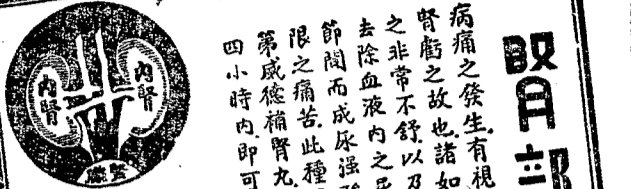 腎部
病痛之發生.有視
腎虧之故也.諸如
之非常不舒.以及
去除血液内之尿
節間而成尿强酸
限之痛苦.此種
第威德補腎丸.
四小時内.即可
内腎
内腎